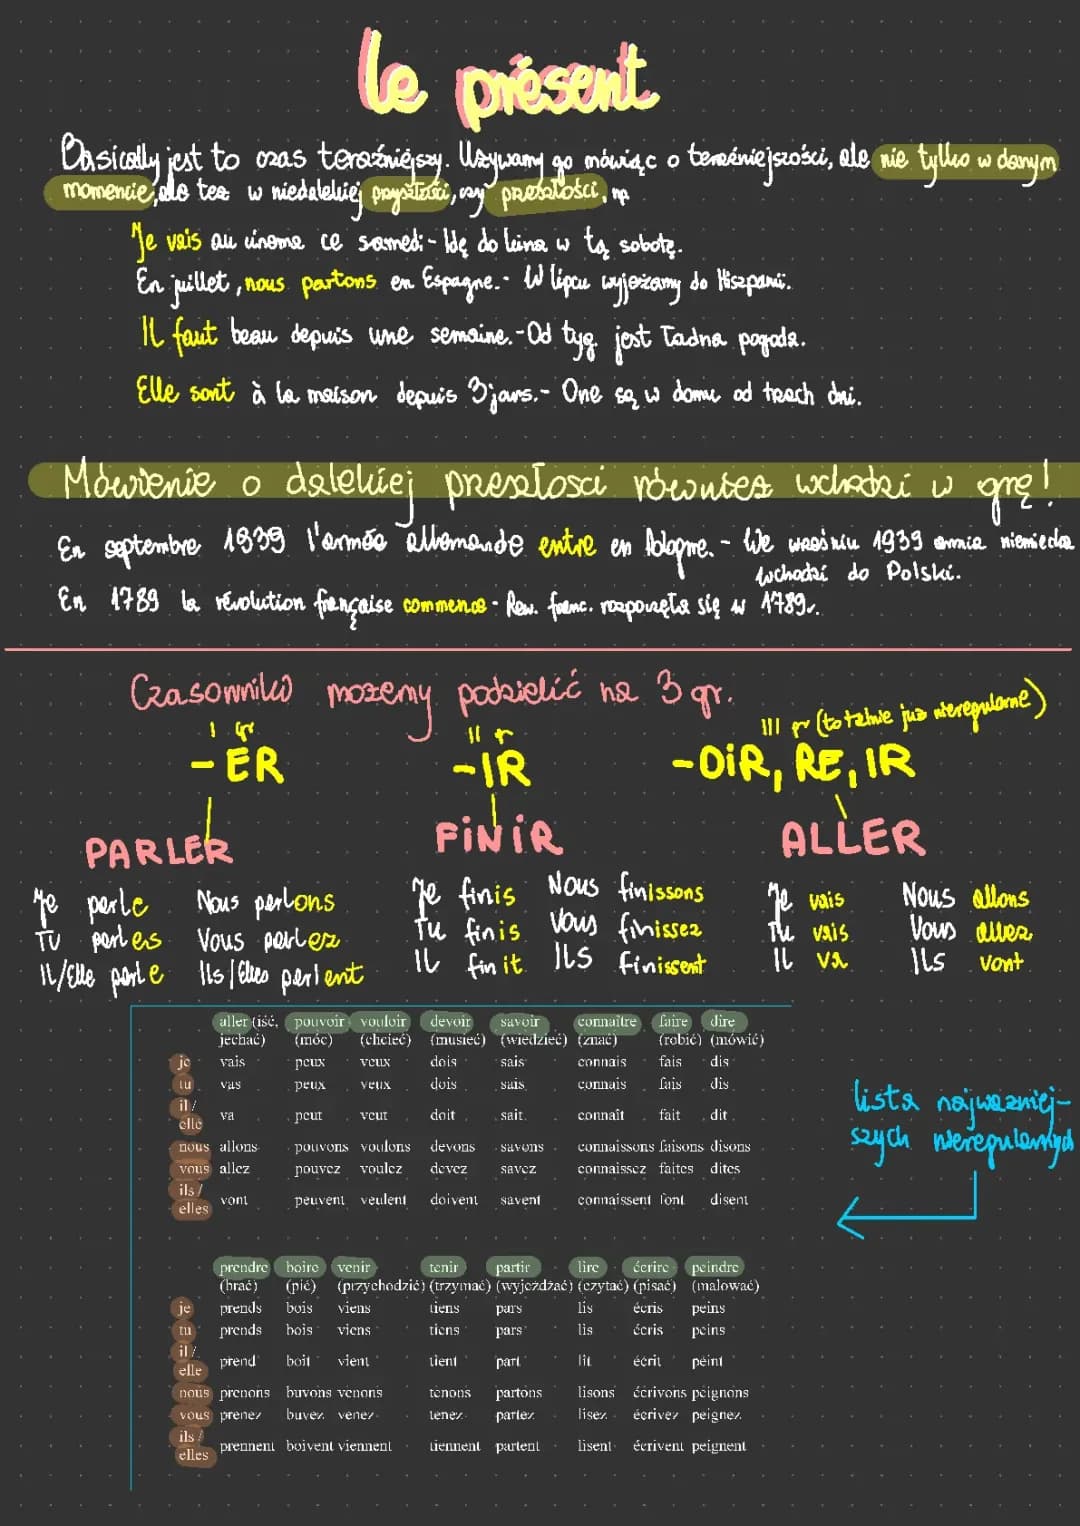 le présent
Basically jest to czas teraźniejszy. Używamy go mówiąc o teraźniejszości, ale nie tylko w danym
momencie, ale też w niedalekiej przyszłości, czy przeszłości, np.
Je vais au cinema ce samedi - Idę do kina w tą sobotę.
En juillet, nous partons en Espagne. - W lipcu wyjeżamy do Hiszpanii.
Il faut beau depuis une semaine. - Od tyg. jest ładna pogoda.
Elle sont à la maison depuis 3 jours. - One są w domu od trzech dni.
Mówienie o dalekiej przeszłosci również wchodzi w grę!
En septembre 1939 l'armée allemande entre en Pologne. - We wrześniu 1939 armia niemiecka
wchodzi do Polski.
En 1789 la révolution française commence - Rew. franc. rozpoczęła się w 1789r.
Czasowniki możemy podzielić na 3 gr.
I gr II gr III gr (totalnie już nieregularne)
- ER -IR -OIR, RE, IR
PARLER FINIR ALLER
Je parle Nous parlons Je finis Nous finissons Je vais Nous allons
Tu parles Vous parlez Tu finis Vous finissez Tu vais Vous allez
Il/Elle parle Ils/Elles parlent Il finit Ils finissent Il va Ils vont
aller (iść, pouvoir vouloir devoir savoir connaître faire dire
jechać) (móc) (chcieć) (musieć) (wiedzieć) (znać) (robić) (mówić)
je vais peux veux dois sais connais fais dis
tu vas peux veux dois sais connais fais dis
il /
elle va peut veut doit sait connaît fait dit
nous allons pouvons voulons devons savons connaissons faisons disons
vous allez pouvez voulez devez savez connaissez faites dites
ils /
elles vont peuvent veulent doivent savent connaissent font disent
lista najważniej-
szych nieregularnych
prendre boire venir tenir partir lire écrire peindre
(brać) (pić) (przychodzić) (trzymać) (wyjeżdżać) (czytać) (pisać) (malować)
je prends bois viens tiens pars lis écris peins
tu prends bois viens tiens pars lis écris peins
il /
elle prend boit vient tient part lit écrit peint
nous prenons buvons venons tenons partons lisons écrivons peignons
vous prenez buvez venez tenez partez lisez écrivez peignez
ils /
elles prennent boivent viennent tiennent partent lisent écrivent peignent